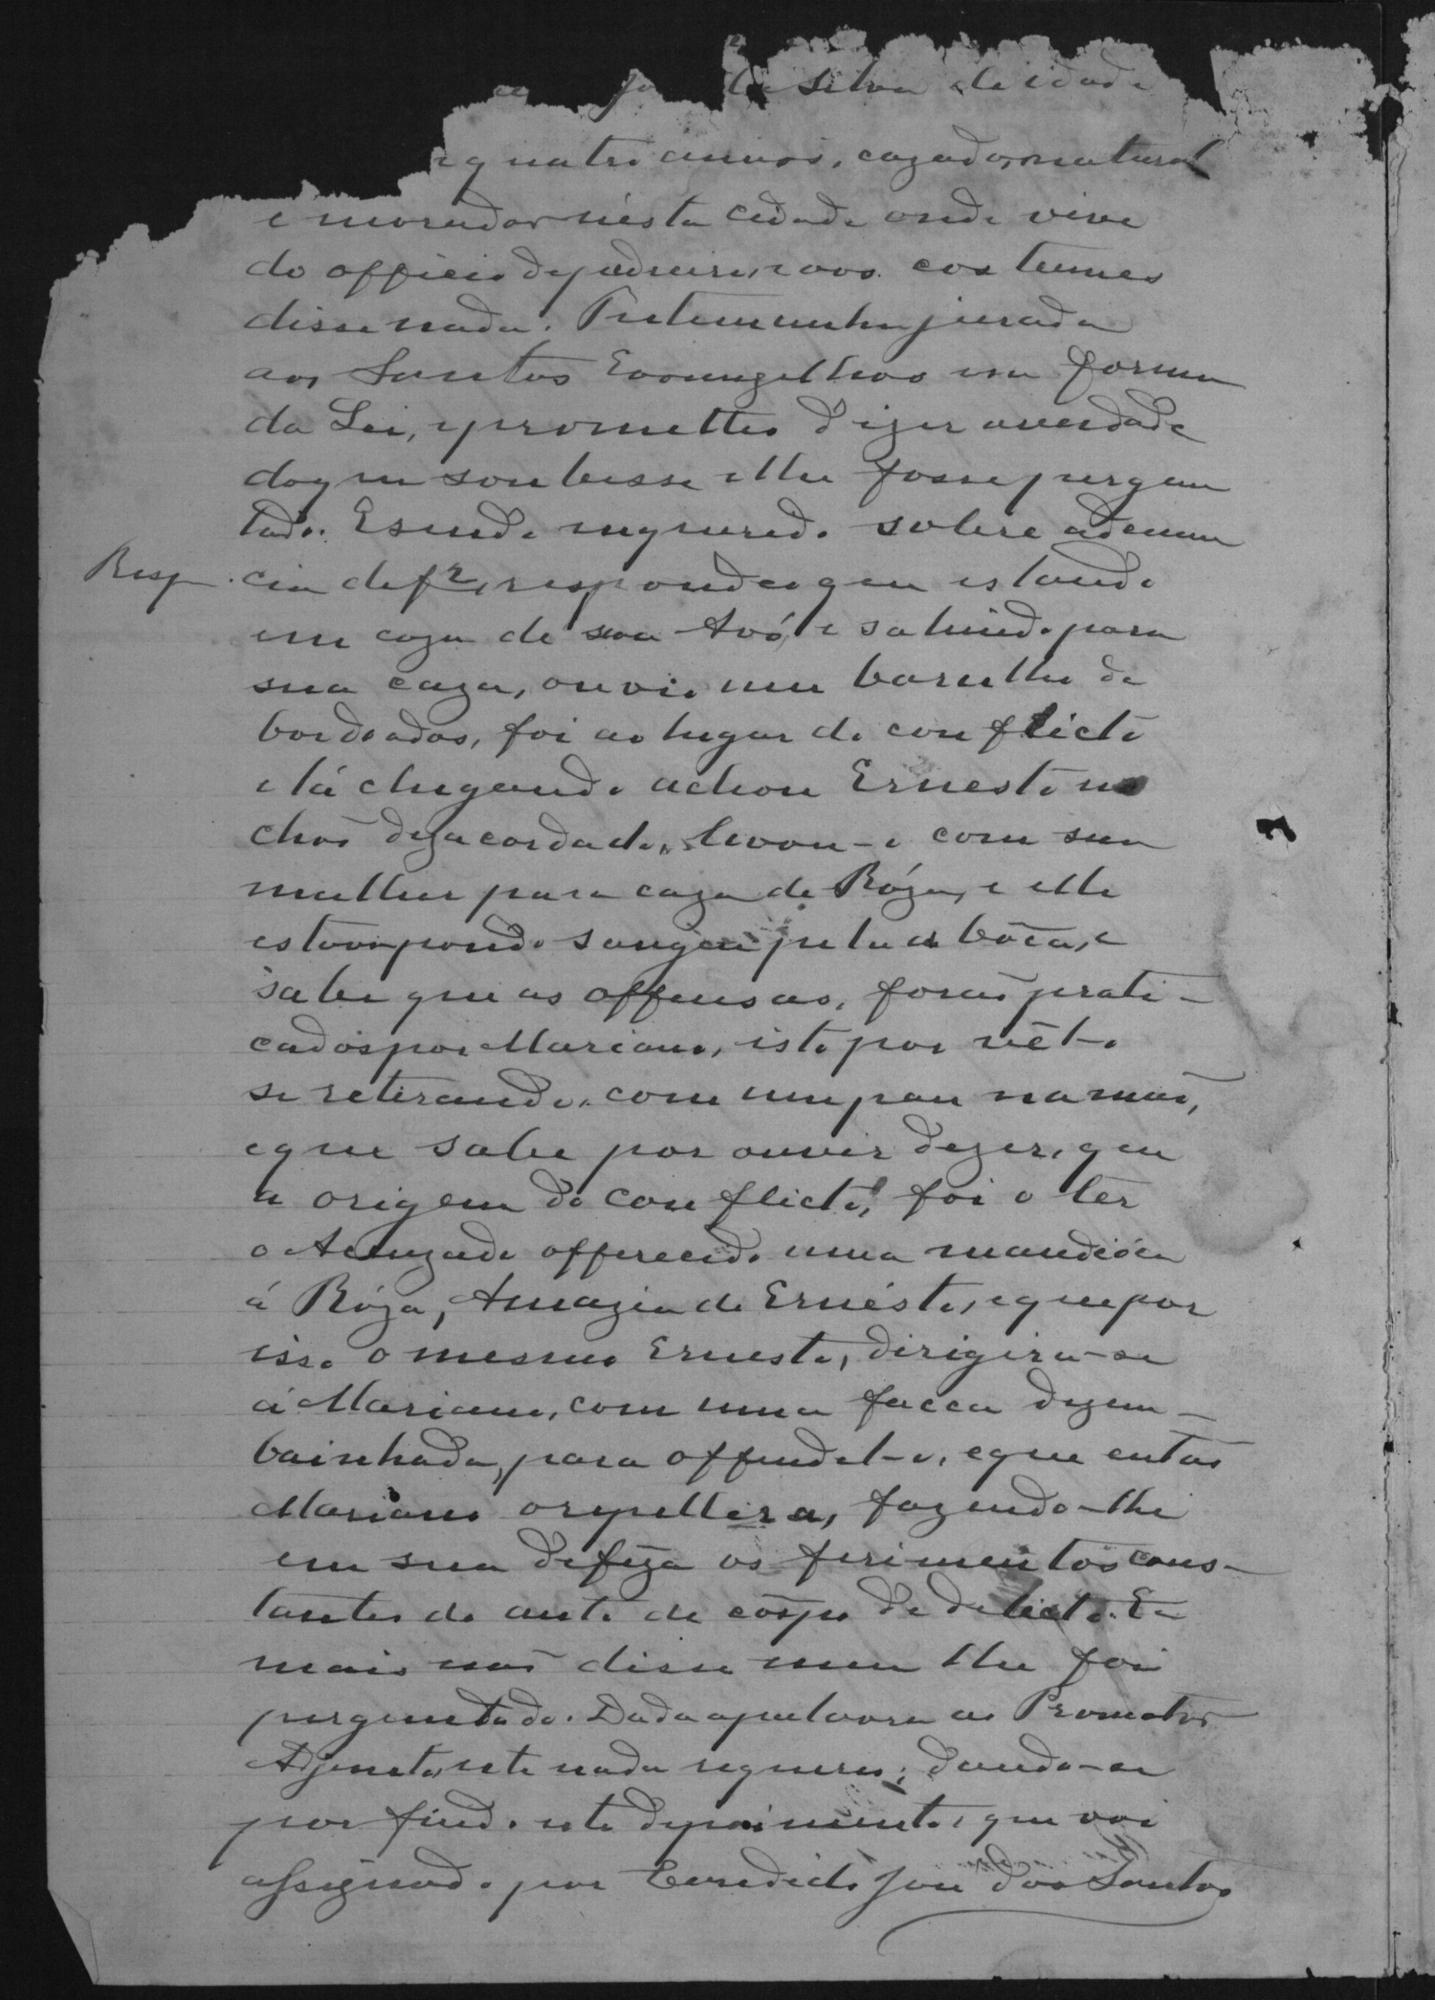 da Silva de idade
e quatro annos, cazado, natural
e morador nésta cidade onde vive
do officio de pedreiro, e aos costumes
disse nada. Testemunha jurada
aos Santos Evangelhos em forma
da Lei, e prometteo dizer averdade
do que soubesse e lhe fosse pergun
tado. E sendo inquerido sobre adenun
Resp. cia de f², respondeo que estando
em caza de sua Avó, e sahindo para
sua caza, ouvio um barulho de
bordoadas, foi ao lugar do conflicto
e lá chegando achou Ernesto no
chaõ dezacordado, levou-o com sua
mulher para caza de Róza, e elle
estava pondo sangue pela a bôca, e
sabe que as offensas, foraõ prati-
cados por Mariano, isto por vêl-o
se retirando, com um pau na maõ,
e que sabe por ouvir dezer, que
a origem do conflicto, foi o ter
o Acuzado offerecido uma mandióca
á Róza, Amazia de Ernésto, e que por
isso o mesmo Ernesto, dirigira-se
á Mariano, com uma facca dezem-
bainhada, para offendel-o, e que entaõ
Mariano o repellera, fazendo-lhe
em sua defeza os ferimentos cons-
tantes do auto de côrpo de delicto. E
mais naõ disse nem lhe foi
perguntado. Dada a palavra ao Promotor
Adjunto, este nada requereo; dando-se
por findo este depoimento, que vai
assignado por Benedicto José dos Santos